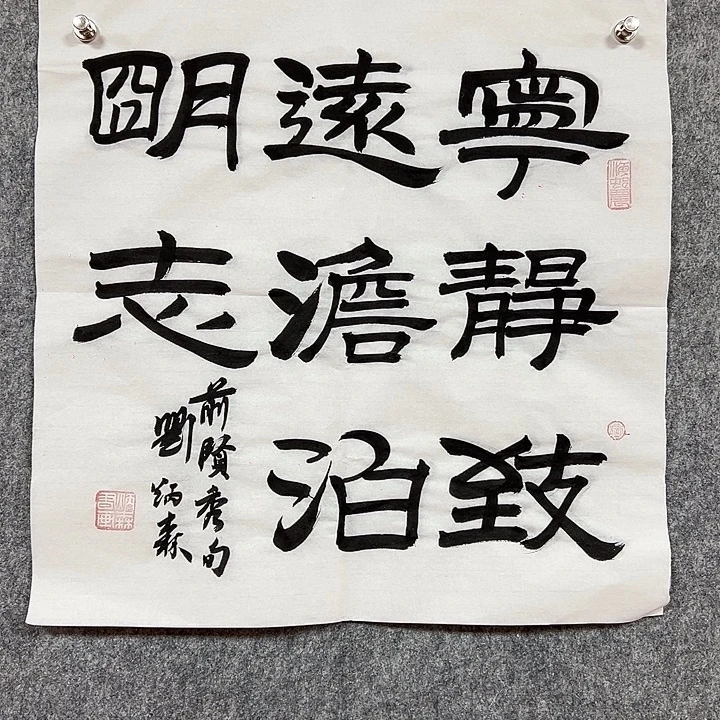 寧靜致
遠澹泊
明志
前賢秀句
劉炳森